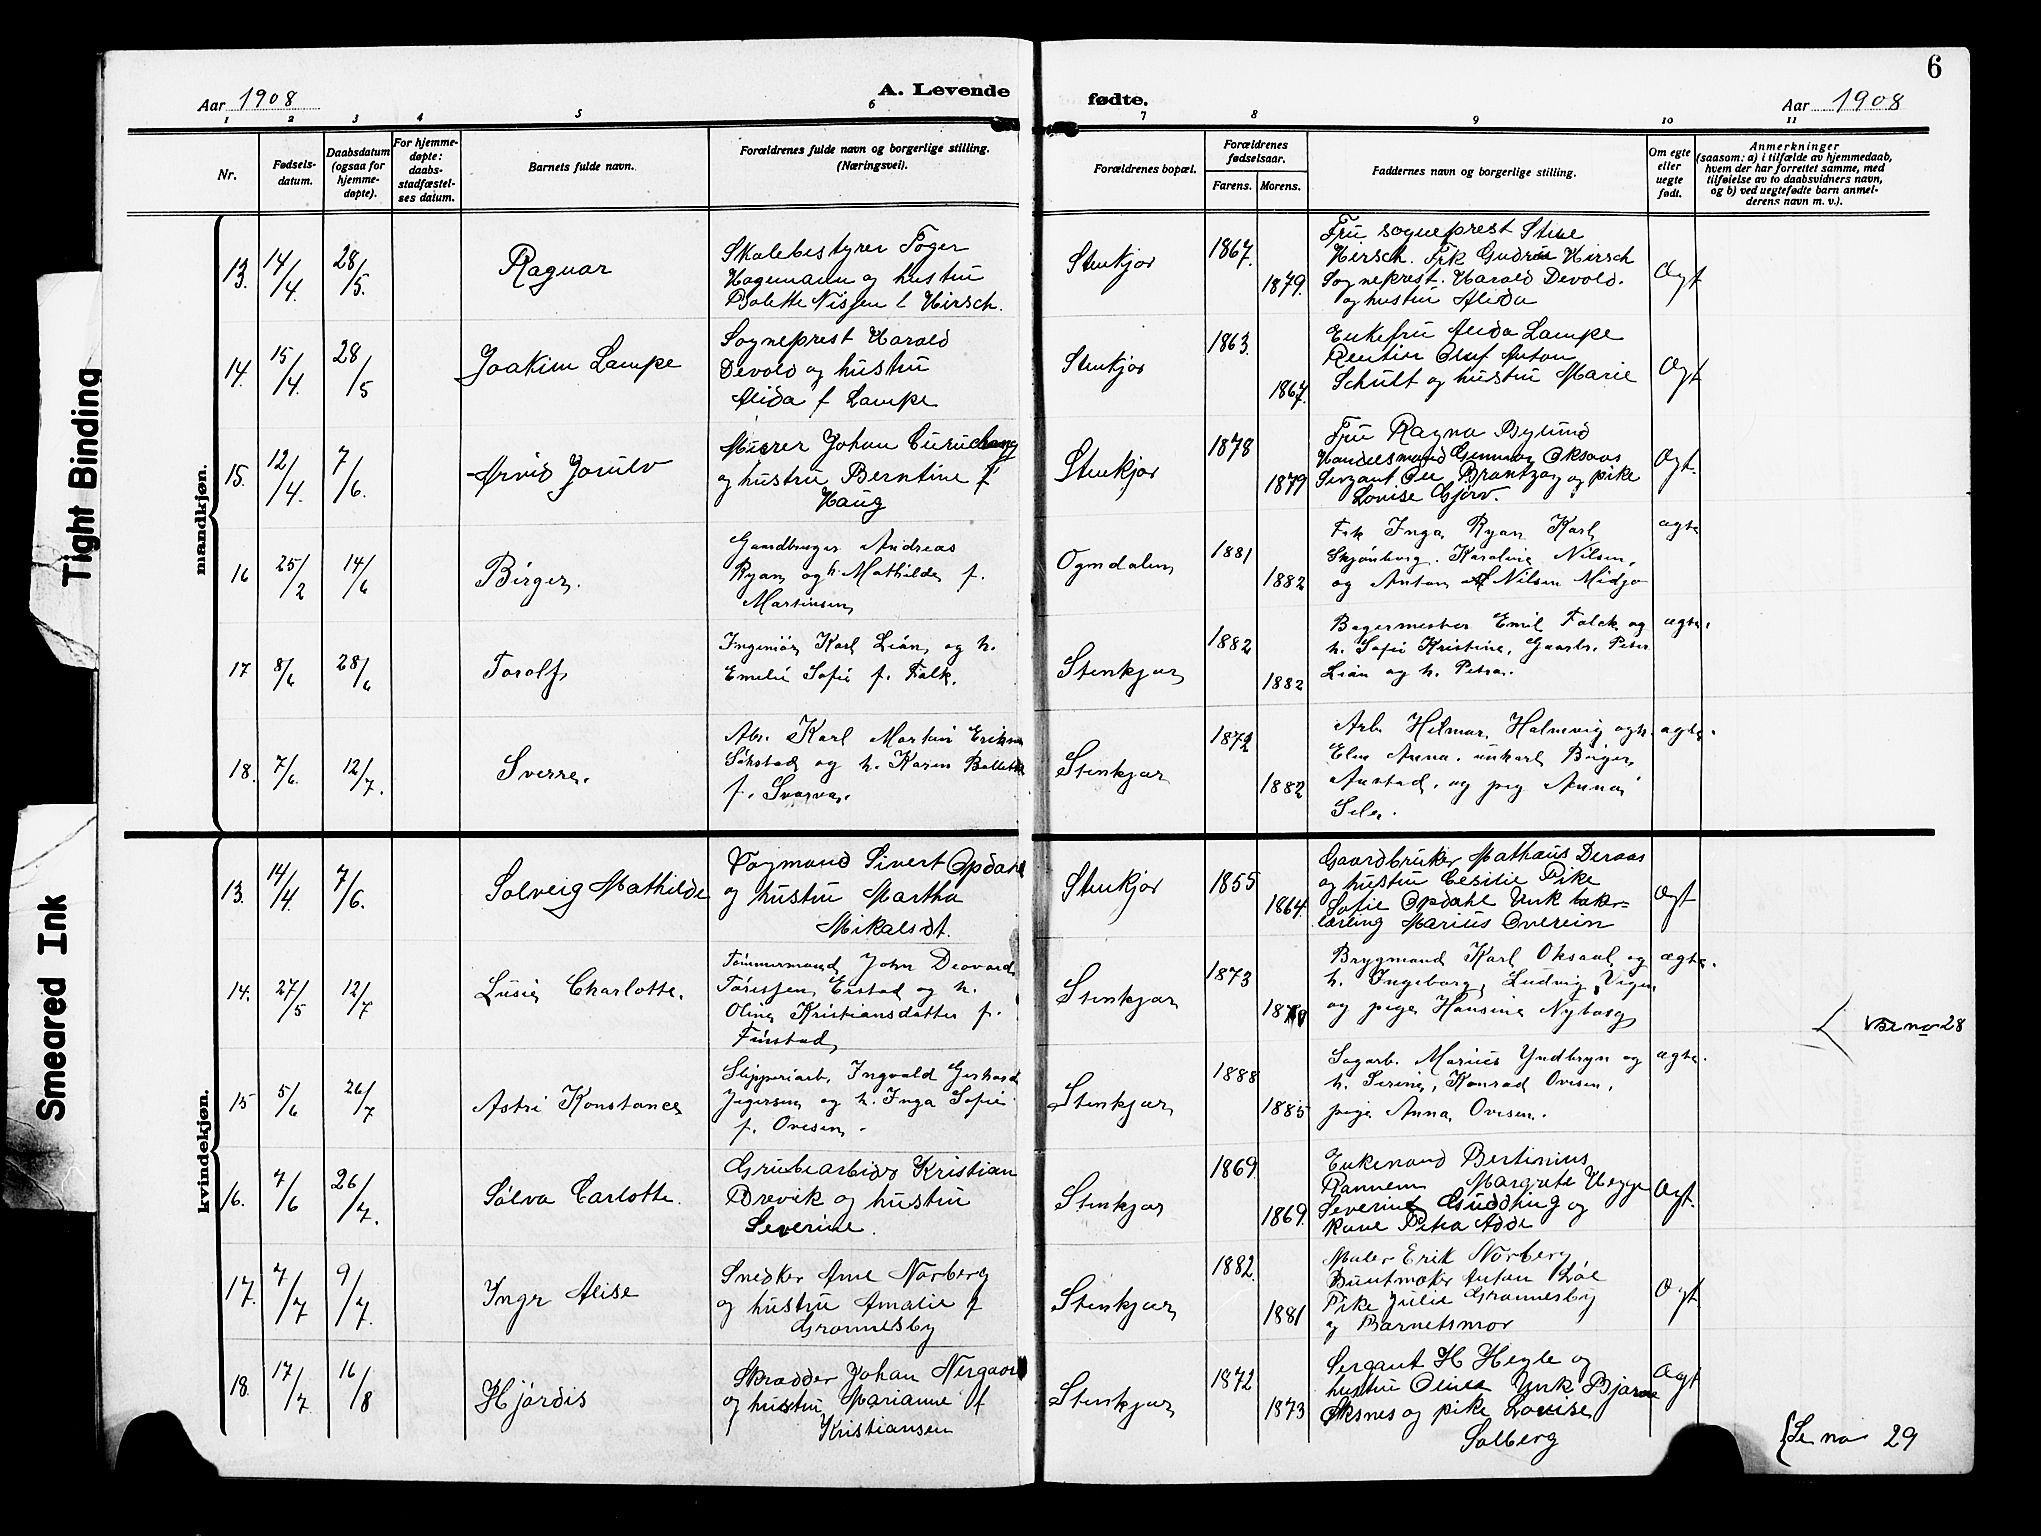 6
Aar 1908
A. Levende
fødte.
Aar 1908
1 2 3 4 5 6 7 8 9 10 11
Nr.
Fødsels-
datum.
Daabsdatum
(ogsaa for
hjemme-
døpte).
For hjemme-
døpte:
daabs-
stadfæstel-
ses datum.
Barnets fulde navn.
Forældrenes fulde navn og borgerlige stilling.
(Næringsvei).
Forældrenes bopæl.
Forældrenes
fødselsaar.
Farens. Morens.
Faddernes navn og borgerlige stilling.
Om egte
eller
uegte
født.
Anmerkninger
(saasom: a) i tilfælde av hjemmedaab,
hvem der har forrettet samme, med
tilføielse av to daabsvidners navn,
og b) ved uegtefødte barn anmel-
derens navn m. v.).
mandkjøn.
13. 14/4. 28/5. Ragnar
Skolebestyrer Toger
Hagemann og hustru
Bolette Nissen f Hirsch.
Stenkjær 1867. 1879.
Fru sogneprest Stine
Hirsch. Frk Gudrun Hirsch
Sogneprest. Harald Devold.
og hustru Alida
Ægt
14. 15/4. 28/5 Joakim Lampe
Sogneprest Harald
Devold og hustru
Alida f Lampe
Stenkjær 1863. 1867.
Enkefru Alida Lampe
Rentier Oluf Anton
Schult og hustru Marie
Ægt
15. 12/4. 7/6. Arvid Jorulv
Murer Johan
og hustru Berntine f
Haug
Stenkjær 1878 1879
Fru Ragna Bylund
Handelsmand Gunnar Oksaas
Serzant og pike
Lovise Gjørv.
Ægt.
16 25/2 14/6 Birger.
Gaardbruger Andreas
Ryan og h. Mathilde f.
Martinsen
Ogndalen 1881 1882
Frk Inga Ryan Karl
Skjønberg. Karoline Nilsen,
og Anton Nilsen Midjo
ægte
17 8/6 28/6 Torolf
Ingeniør Karl Lian og h.
Emelie Sofie f. Falk.
Stenkjær 1882 1882
Bagermester Emil Falck og
h. Sofie Kristine, Gaardb. Peter
Lian og h. Petra.
ægte.
18. 7/6. 12/7. Sverre.
Abr. Karl Martin
Sørstad og h. Karen Bollette
f. Svarva.
Stenkjær 1872 1882
Arb. Hilmar Halmvig og h.
Elen Anna. unkarl Birger
Austad. og pig Anna
ægte.
kvindekjøn.
13. 14/4. 7/6. Solveig Mathilde
Vogmand Sivert Opdahl
og hustru Martha
Mikalsdt.
Stenkjær 1855 1864.
Gaardbruker Mathæus Deraas
og hustru Cesilie Pike
Sofie Opdahl Unk baker-
lærling Marius Overein
Ægt
14. 27/5 12/7 Lusie Charlotte.
Tømmermand John Deovard
Toresen Erstad og h.
Oline Kristiansdatter f.
Finstad
Stenkjær 1873
Brygmand Karl Oksaal og
h. Ingeborg, Ludvig Vigen
og pige Hansine Nyborg
ægte.
no 28
15 5/6 26/7 Astri Konstance
Slipperiarb. Ingvald Gerhard
Jegersen og h. Inga Sofie
f. Ovesen.
Stenkjær 1888 1885
Sagarb. Marius Yndbryn og
h. Serine, Konrad Ovesen,
pige Anna Ovesen.
ægte.
16. 7/6 26/7. Sølva Carlotte.
Grubearbider Kristian
Brevik og hustru
Severine.
Stenkjær 1869 1869.
Enkemand Bertinius
Rannem Margrete Hegge
Severine Gudding og
kone Petra Adde
Ægt.
17. 7/7 9/7. Ingr Alise
Snedker Arne Norberg
og hustru Amalie f
Grønnesby
Stenkjær 1882. 1881
Maler Erik Norberg
Buntmaker Anton Løe
Pike Julie Grønnesby
og Barnetsmor
Ægt
18. 17/7. 16/8 Hjørdis
Skrædder Johan Nergaard
og hustru Marianne f
Kristiansen
Stenkjær 1872 1873
Sergant H Hegle og
hustru Oline Unk Bjarne
Øksnes og pike Lovise
Solberg
Ægt
Se no 29
Tight Binding
Smeared Ink